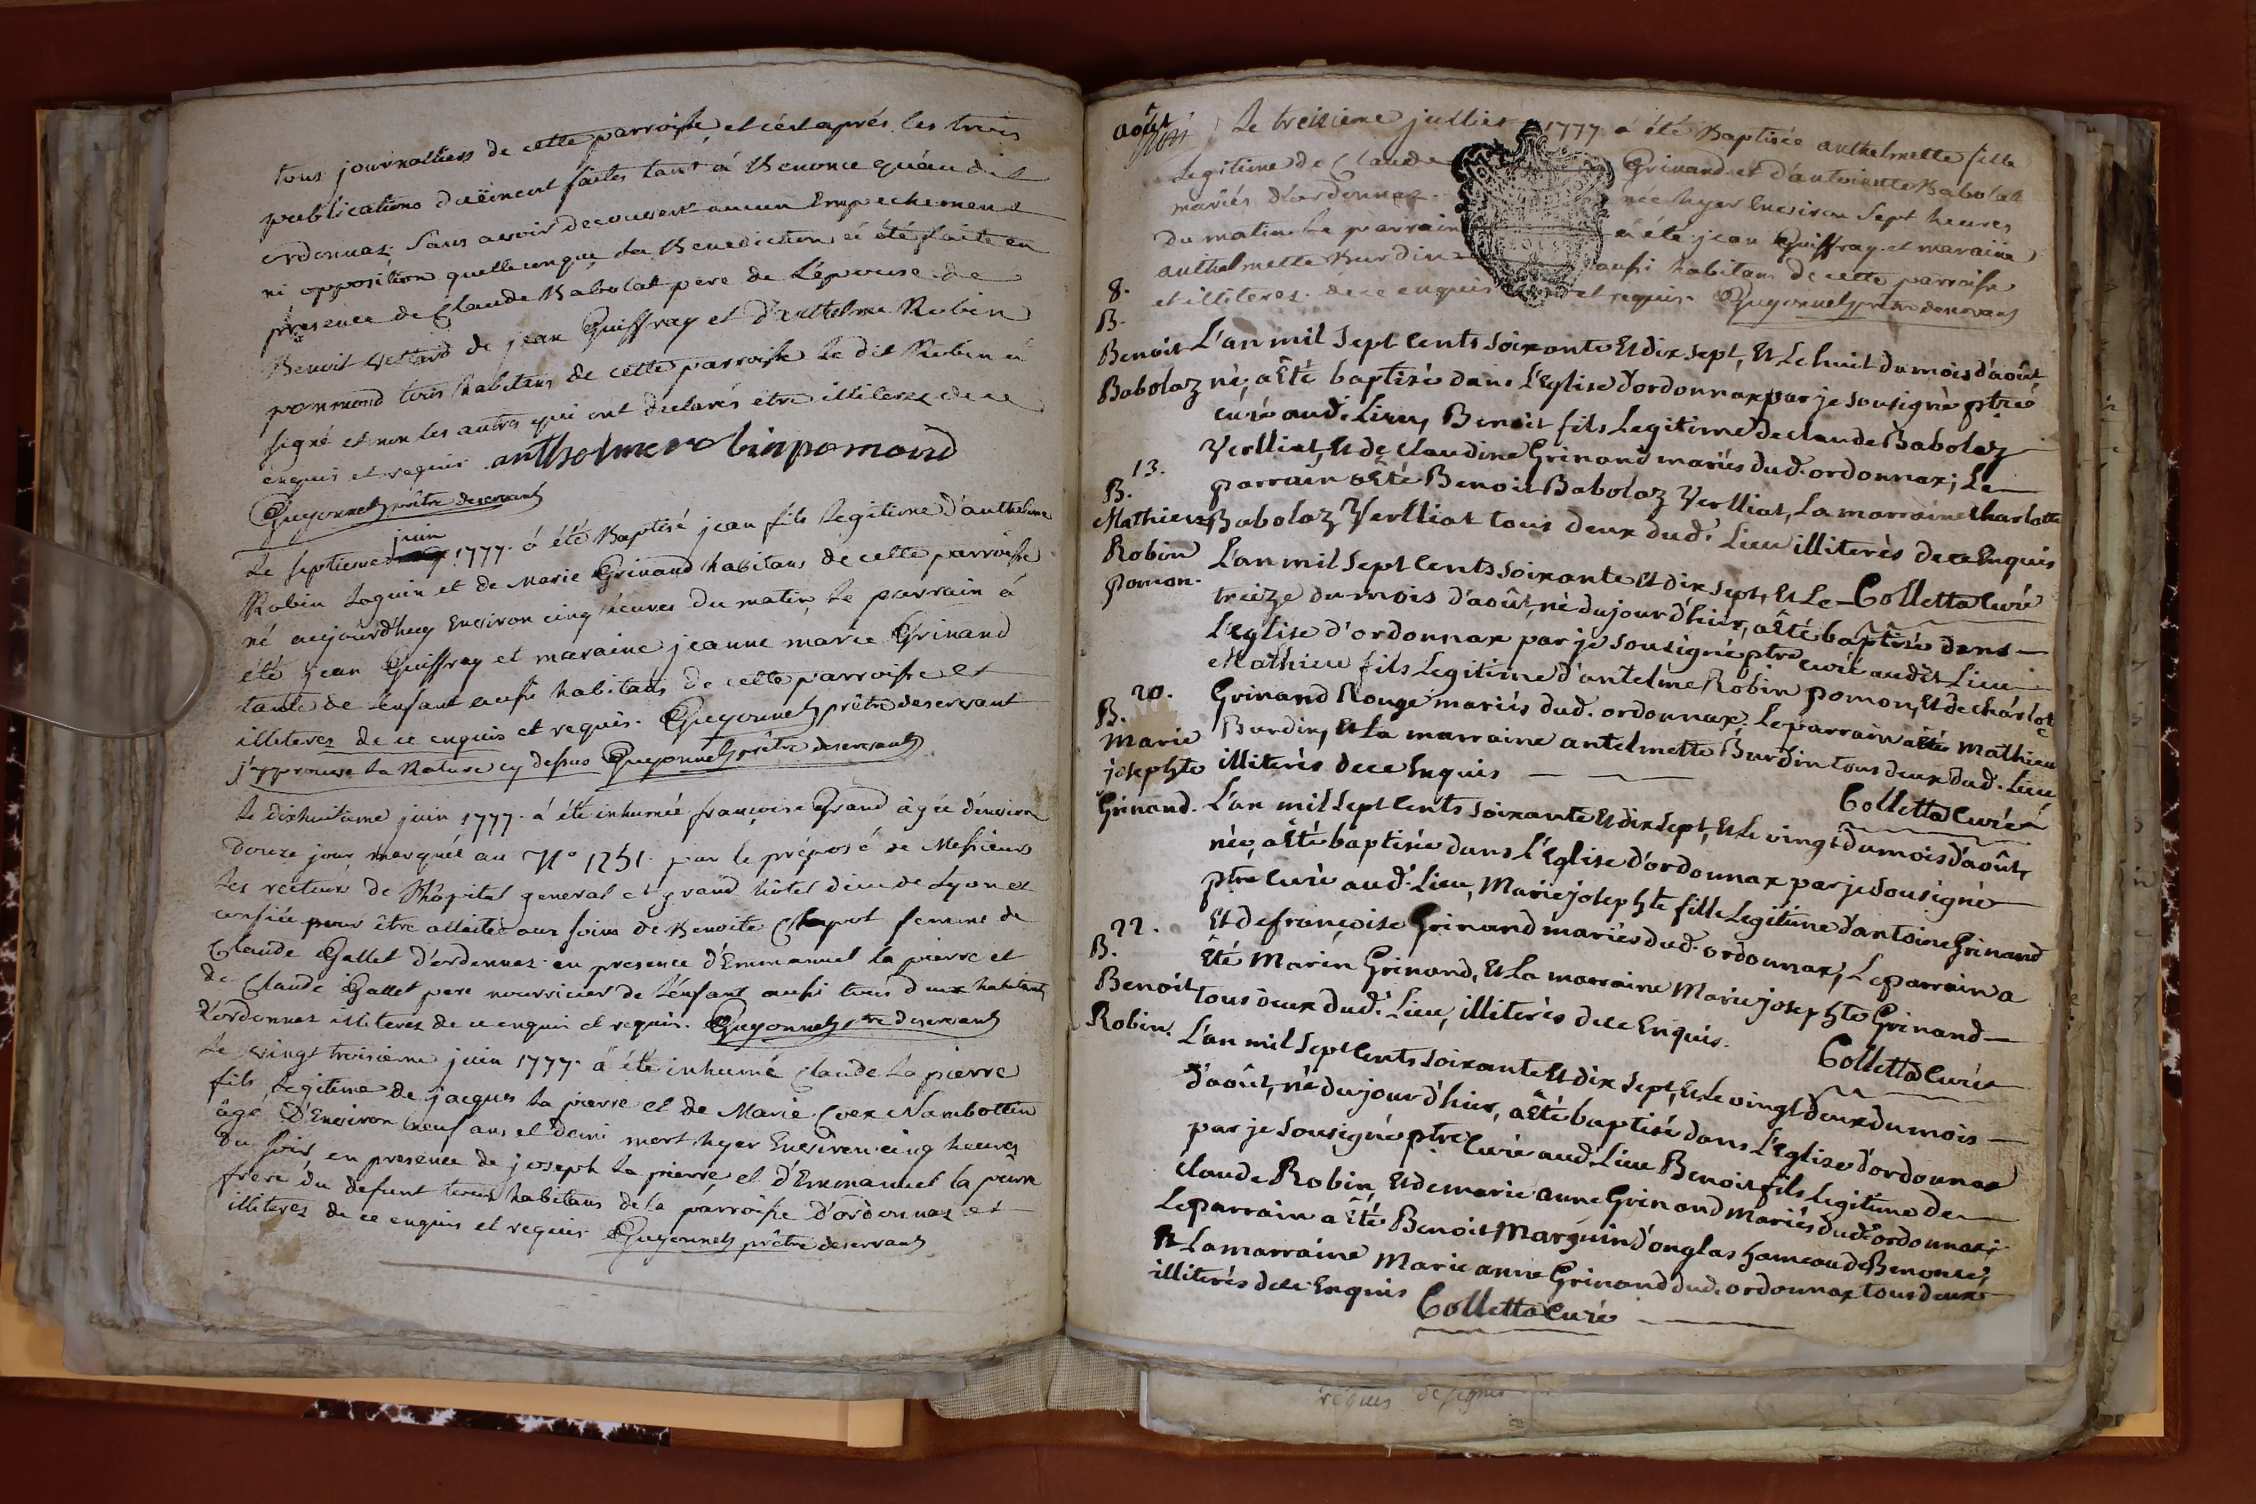 tous journalliers de cette parroisse, et c'est aprés les trois
publications duëment faites tant á Benonce qu'au dit
ordonnaz, sans avoir decouvert aucun Empechement
ni opposition quelleconque la Benediction á été faite en
presence de Claude Babolat pere de L'épouse de
Benoit de jean Guiffray et d'anthelme Robin
pommond tous habitans de cette parroisse le dit Robin á
signé et non les autres qui ont declarés etre illiterez de ce
enquis et requis. anthelme robin pomond
Guyonnet prêtre deservant
juin
Le septieme 1777. á été Baptisé jean fils Legitime d'anthelme
Robin Loguin et de Marie Grinand habitans de cette parroisse
né aujourd'huy Environ cinq heures du matin, Le parrain á
été jean Guiffray et maraine jeanne marie Grinand
tante de L'enfant aussi habitans de cette parroisse et
illiterez de ce enquis et requis. Guyonnet prêtre deservant
j'approuve la Rature cy dessus Guyonnet prêtre deservant
Le dixhuitieme juin 1777. á été inhumée françoise Grand âgée d'environ
douze jours marquée au N° 1251. par le préposé de Messieurs
les recteurs de l'hôpital general et grand hôtel dieu de Lyon et
confiée pour être allaitée aux soins de Benoite Chapot femme de
Claude Gallet d'ordonnaz en presence d'Emmanuel la pierre et
de Claude Gallet pere nourricier de L'enfant aussi tous deux habitants
d'ordonnaz illiterez de ce enquis et requis. Guyonnet ptre deservant
Le vingt troisieme juin 1777. á été inhumé Claude La pierre
fils Legitime de jacques La pierre et de Marie Cvex Nambottin
âgé D'Environ neuf ans et demi mort hyer Environ cinq heures
du soir, en presence de joseph La pierre et d'Emmanuel la pierre
frere du defunt tous habitans de la parroisse d'ordonnaz et
illiterez de ce enquis et requis Guyonnet prêtre deservant
août
Le treizieme julliet 1777. á été Baptisée anthelmette fille
Legitime de Claude Grinand et d'antoinette Babolat
mariés d'ordonnaz. née hyer Environ sept heures
du matin Le parrain á été jean Guiffray et maraine
anthelmette Burdin aussi habitans de cette parroisse
et illiterez. de ce enquis et requis. Guyonnet prêtre deservant
8.
B.
Benoit
Babolaz
L'an mil sept Cents soixante Et dix sept, Et Le huit du mois d'août,
né, a Eté baptisé dans L'Eglise d'ordonnax par je sousigné ptre
curé aud. Lieu, Benoit fils Legitime de claude Babolaz
Verlliat, Et de claudine Grinand mariés dud. ordonnax; Le
parrain a Eté Benoit Babolaz Verlliat, La marraine Charlotte
Babolaz Verlliat tous deux dud. Lieu illiterés de ce Enquis
Colletta Curé
13.
B.
Mathieu
Robin
Pomon.
L'an mil sept Cents soixante Et dix sept, Et Le
treize du mois d'août, né du jour d'hier, a Eté baptisé dans
l'Eglise d'ordonnax par je sousigné ptre curé audit Lieu
Mathieu fils Legitime d'antelme Robin pomon, Et de charlotte
Grinand Rouge mariés dud. ordonnax; Le parrain a Eté Mathieu
Burdin, Et La marraine antelmette Burdin tous deux dud. Lieu,
illiterés de ce Enquis
Colletta Curé
20.
B.
Marie
josephte
Grinand.
L'an mil sept Cents soixante Et dix sept, Et Le vingt du mois d'août,
née, a Eté baptisée dans L'Eglise d'ordonnax par je sousigné
ptre Curé aud. Lieu, Marie josephte fille Legitime d'antoine Grinand
Et de françoise Grinand mariés dud. ordonnax; Le parrain a
Eté Marin Grinand, Et La marraine Marie josephte Grinand
tous deux dud. Lieu, illiterés de ce Enquis.
Colletta Curé
22.
B.
Benoit
Robin.
L'an mil sept Cents soixante Et dix sept, Et Le vingt deux du mois
d'août, né du jour d'hier, a Eté baptisé dans L'Eglise d'ordonnax
par je sousigné ptre Curé aud. Lieu Benoit fils Legitime de
claude Robin, Et de marie anne Grinand Mariés dud. ordonnax;
Le parrain a Eté Benoit Marguin d'onglas hameau de Benonce,
Et La marraine Marie anne Grinand dud. ordonnax tous deux
illiterés de ce Enquis Colletta Curé
requis de signer